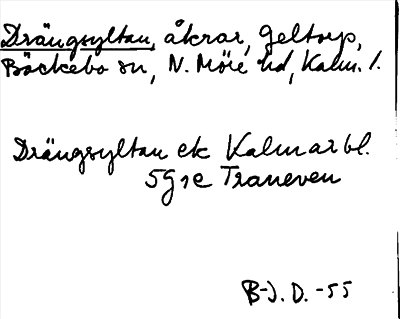 Drängsyltan, åkrar, Geltorp,
Bäckebo sn, N. Möre hd, Kalm. l.
Drängsyltan ek Kalmar bl.
5g 1e Traneven
B-J. D. -55